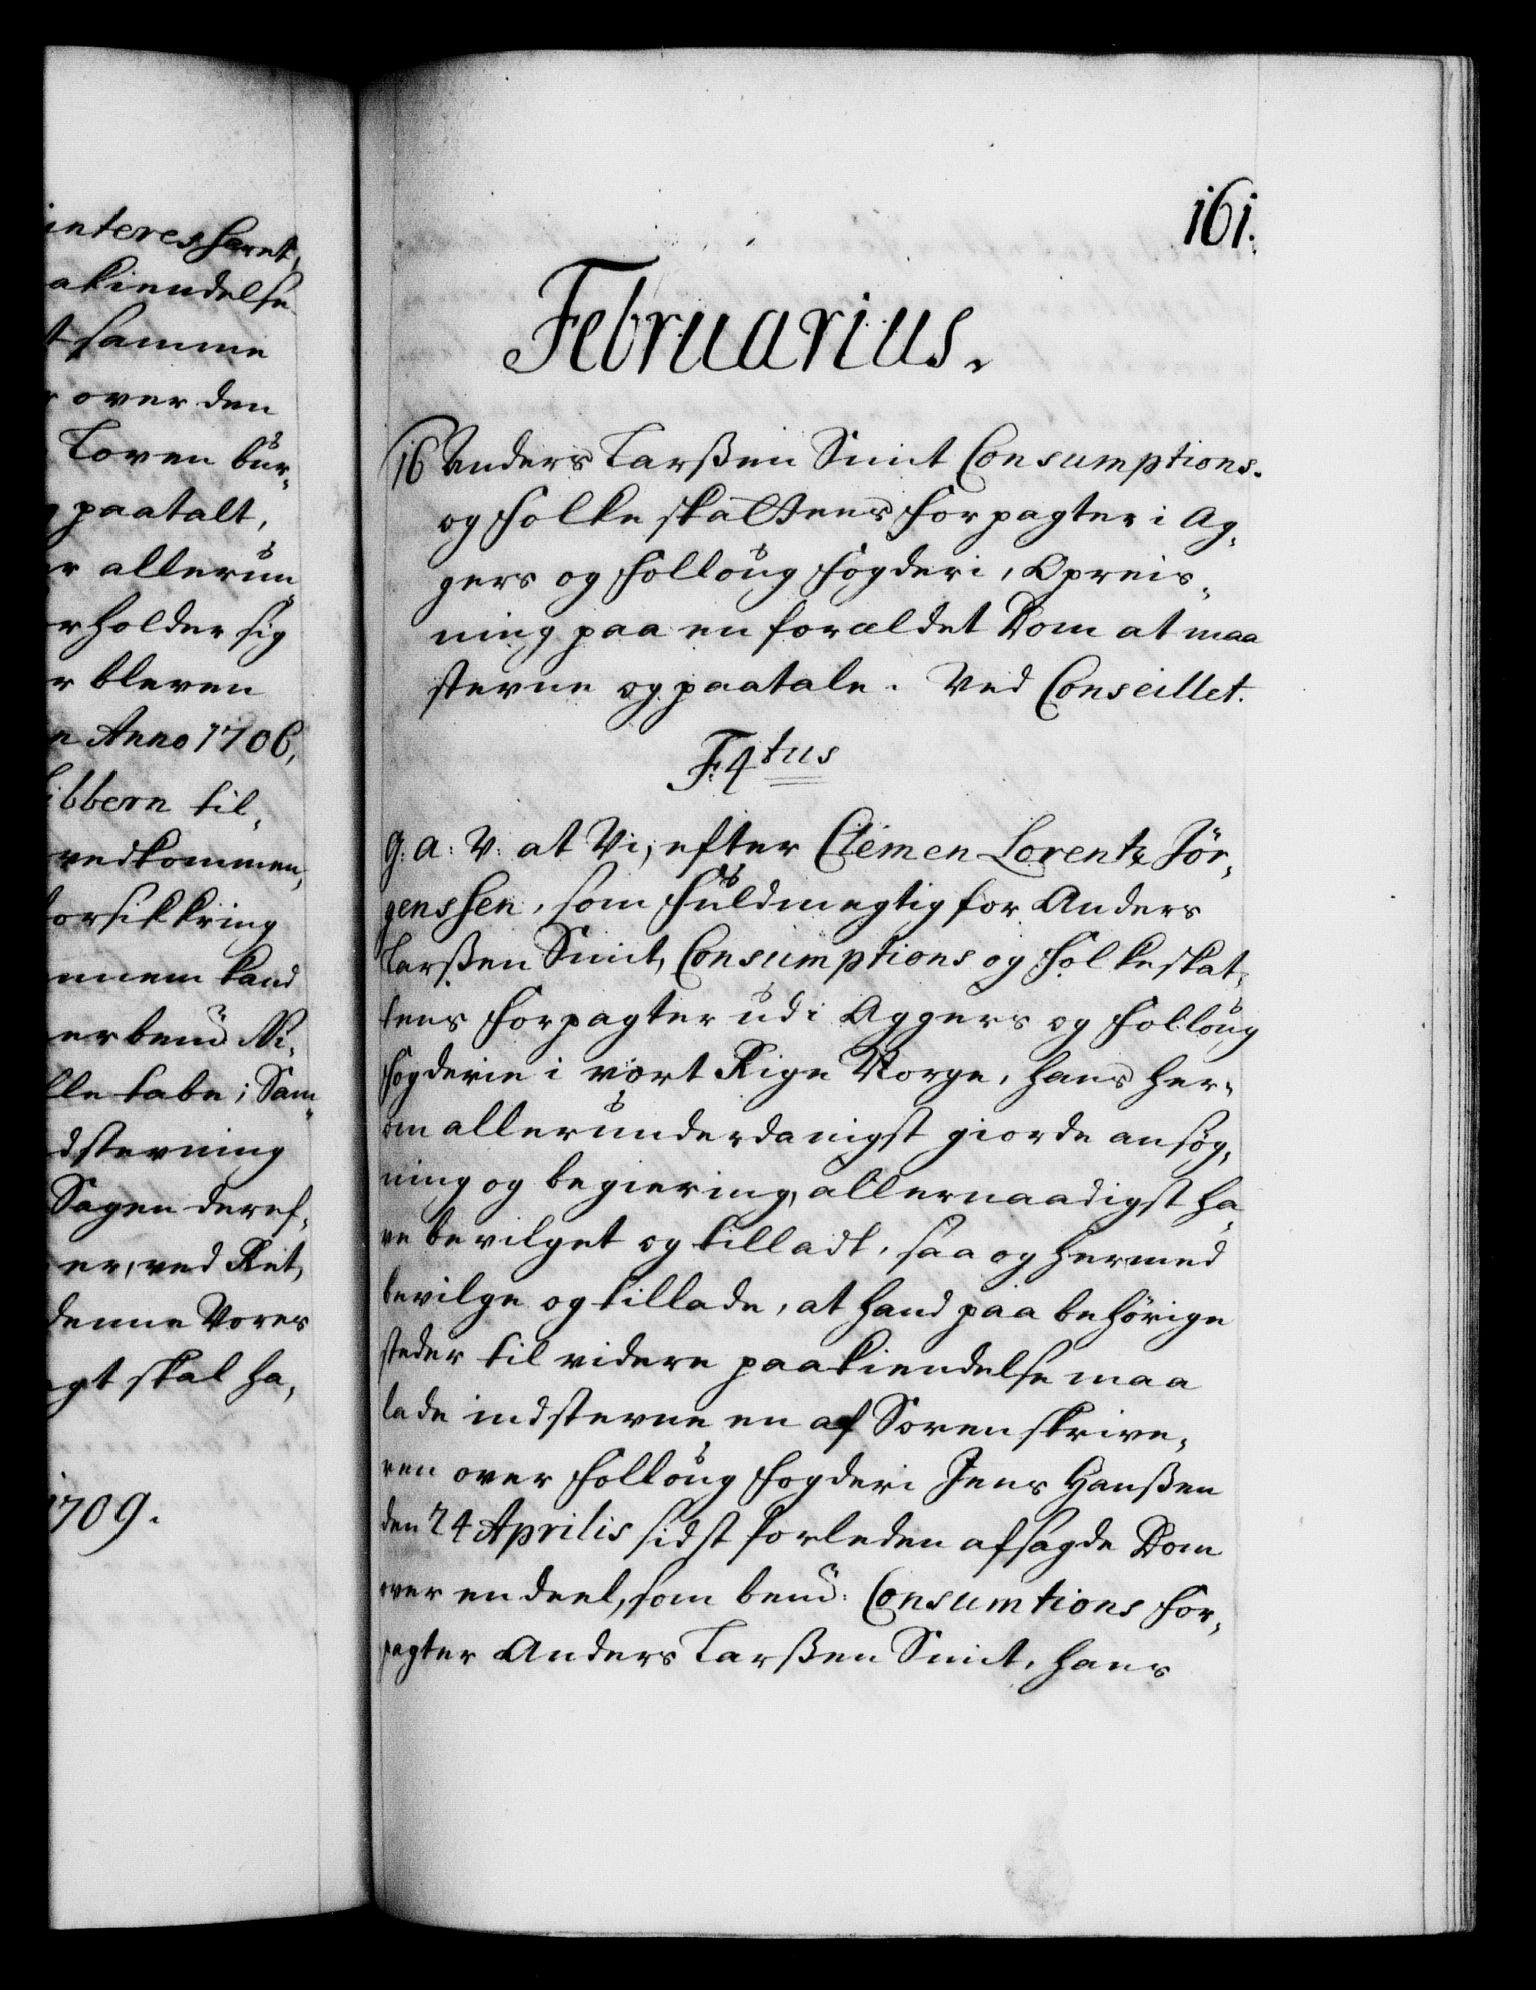 interesseret,
akiendelse
t samme
r over den
Loven bur,
paatalt,
r allerun
rholder sig
r bleven
n Anno 1706,
ibbern til,
vedkommen,
orsikkring
nnem kand
er bemd. Ni,
lle tabe; Sam
dstevning
Sagen deref,
er, ved Ret,
denne Vores
gt skal ha,
1709.
161.
Februarius.
16 Anders Larssen Smit Consumptions-
og Folke skattens Forpagter i Ag,
gers og Folloug Fogderi, Opreis,
ning paa en forældet Dom at maa
stevne og paatale. Ved Conseillet.
F: 4tus
G: A: V: at Vi, efter Clemen Lorentz Jör,
genssen, som Fuldmegtig for Anders
Larssen Smit, Consumptions og Folkeskat,
tens Forpagter udi Aggers og Folloug
Fogderie i vort Rige Norge, hans her,
om allerunderdanigst giorde ansøg,
ning og begiering, allernaadigst ha
ve bevilget og tilladt, saa og hermed
bevilge og tillade, at hand paa behörige
steder til videre paakiendelse maa
lade indstevne en af Sorenskrive,
ren over Folloug Fogderi Jens Hanssen
den 24 Aprilis sidst forleden afsagde Dom
over en deel, som bemd: Consumtions For,
pagter Anders Larssen Smit, hans